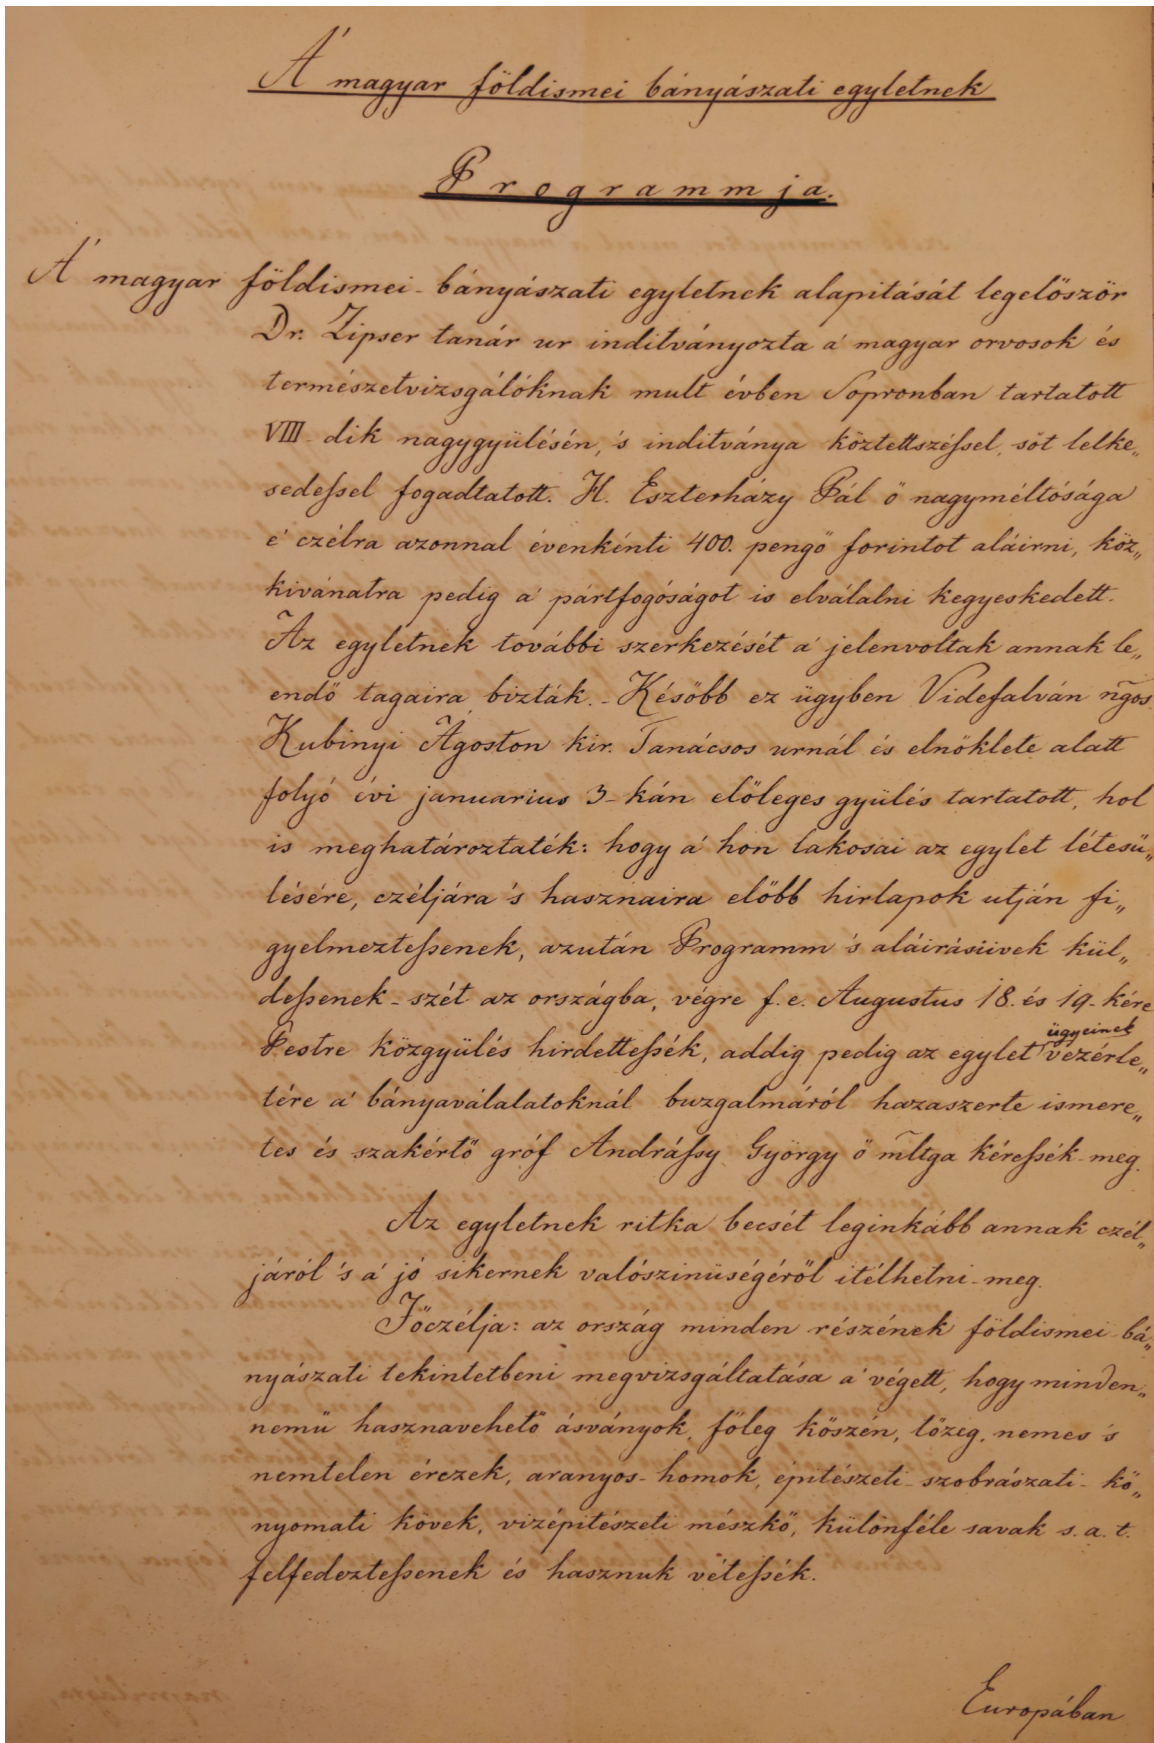 A' magyar földismei bányászati egyletnek
Programmja.
A' magyar földismei-bányászati egyletnek alapitását legelőször
Dr. Zipser tanár ur inditványozta a' magyar orvosok és
természetvizsgálóknak mult évben Sopronban tartatott
VIII-dik nagygyülésén, 's inditványa köztettszéssel, sőt lelke„
sedessel fogadtatott. H. Eszterházy Pál ő nagyméltósága
e' czélra azonnal évenkénti 400. pengő forintot aláirni, köz„
kivánatra pedig a' pártfogóságot is elválalni kegyeskedett.
Az egyletnek további szerkezését a' jelenvoltak annak le„
endő tagaira bizták. - Később ez ügyben Videfalván ngos
Kubinyi Ágoston kir. Tanácsos urnál és elnöklete alatt
folyó évi januarius 3-kán előleges gyülés tartatott, hol
is meghatároztaték: hogy a' hon lakosai az egylet létesü„
lésére, czéljára 's hasznaira előbb hirlapok utján fi„
gyelmeztessenek, azután Programm 's aláirásiivek kül„
dessenek-szét az országba, végre f. e. Augustus 18. és 19-kére
Pestre közgyülés hirdettessék, addig pedig az egylet ügyeinek vezérle„
tére a' bányaválalatoknál buzgalmáról hazaszerte ismere„
tes és szakértő gróf Andrássy György ő mltga kéressék-meg.
Az egyletnek ritka becsét leginkább annak czél„
járól 's a' jó sikernek valószinüségéről itélhetni-meg.
Főczélja: az ország minden részének földismei-bá„
nyászati tekintetbeni megvizsgáltatása a' végett, hogy minden„
nemü hasznavehető ásványok, főleg kőszén, tőzeg, nemes 's
nemtelen érczek, aranyos-homok, épitészeti-szobrászati-kő„
nyomati kövek, vizépitészeti mészkő, különféle savak s. a. t.
felfedeztessenek és hasznuk vétessék.
Europában